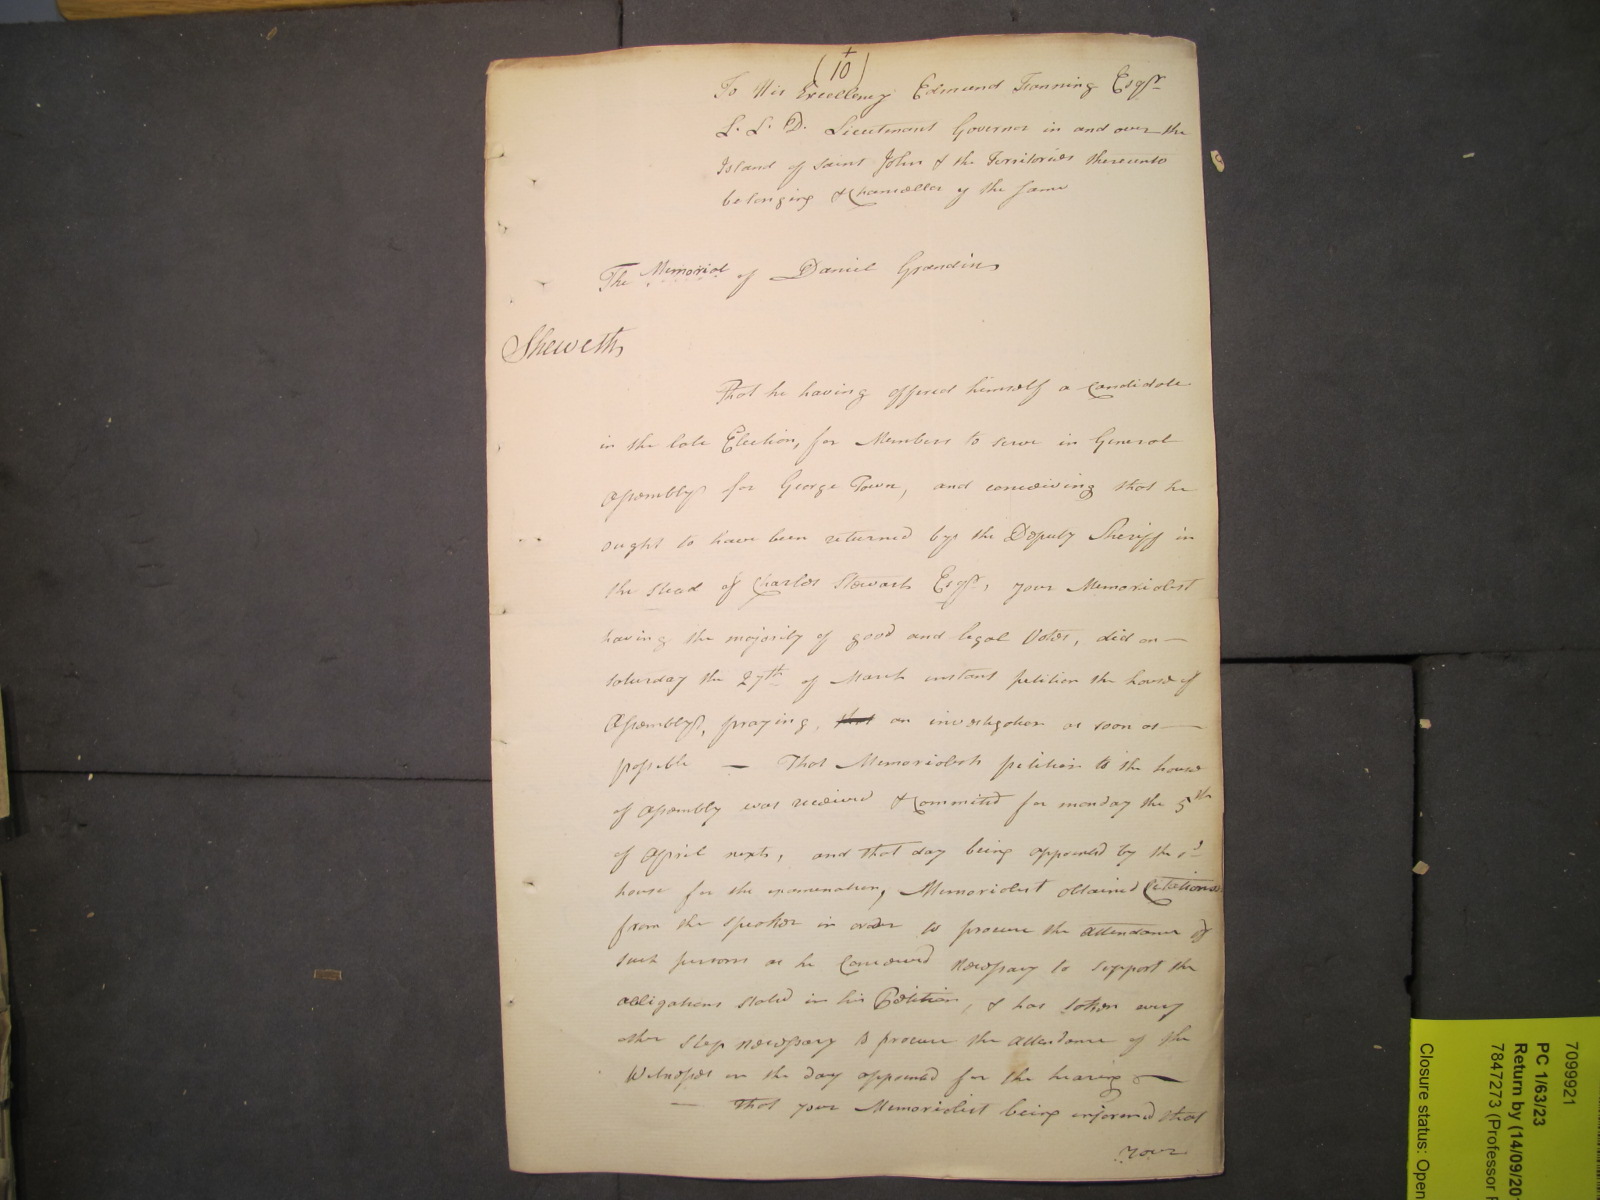 (10)
To His Excellency Edmund Fanning Esqr
L. L. D. Lieutenant Governor in and over the
Island of Saint John & the Territories thereunto
belonging & Chancellor of the same
The Memorial of Daniel Grandin
Sheweth,
That he having offered himself a Candidate
in the late Election, for Members to serve in General
Assembly for George Town, and conceiving that he
ought to have been returned by the Deputy Sheriff in
the stead of Charles Stewart Esqr, your Memorialist
having the majority of good and legal Votes, did on
saturday the 27th of March instant petition the house of
Assembly, praying, that an investigation as soon as
possible — That Memorialists petition to the house
of Assembly was received & Committed for monday the 5th
of April next, and that day being appointed by the sd
house for the examination, Memorialist obtained Citations
from the speaker in order to procure the attendance of
such persons as he Conceived Necessary to support the
alligations stated in his Petition, & has taken every
other step Necessary to procure the attendance of the
Witnesses on the day appointed for the hearing —
— That your Memorialist being informed that
your
7099921
PC 1/63/23
Return by (14/09/20
7847273 (Professor
Closure status: Open